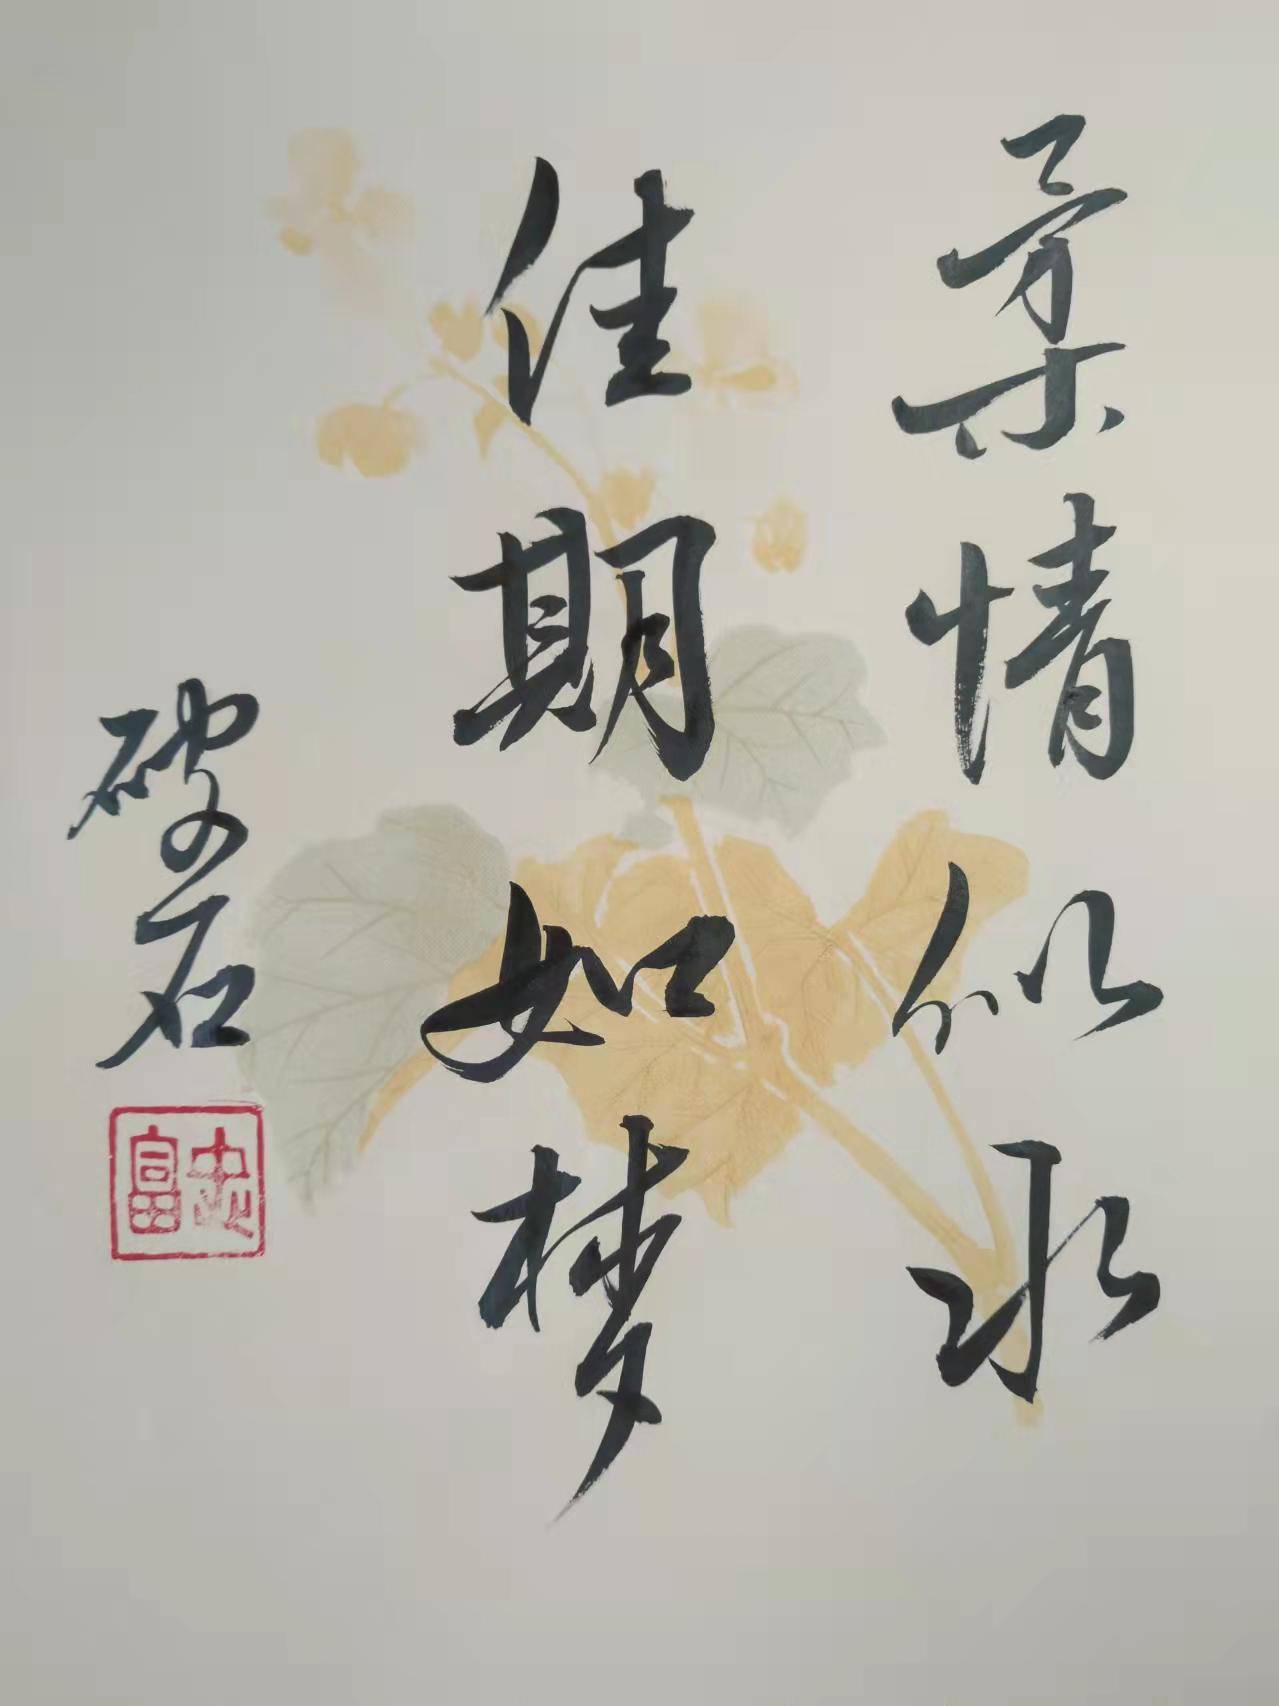 柔情似水
佳期如梦
破石
忠富